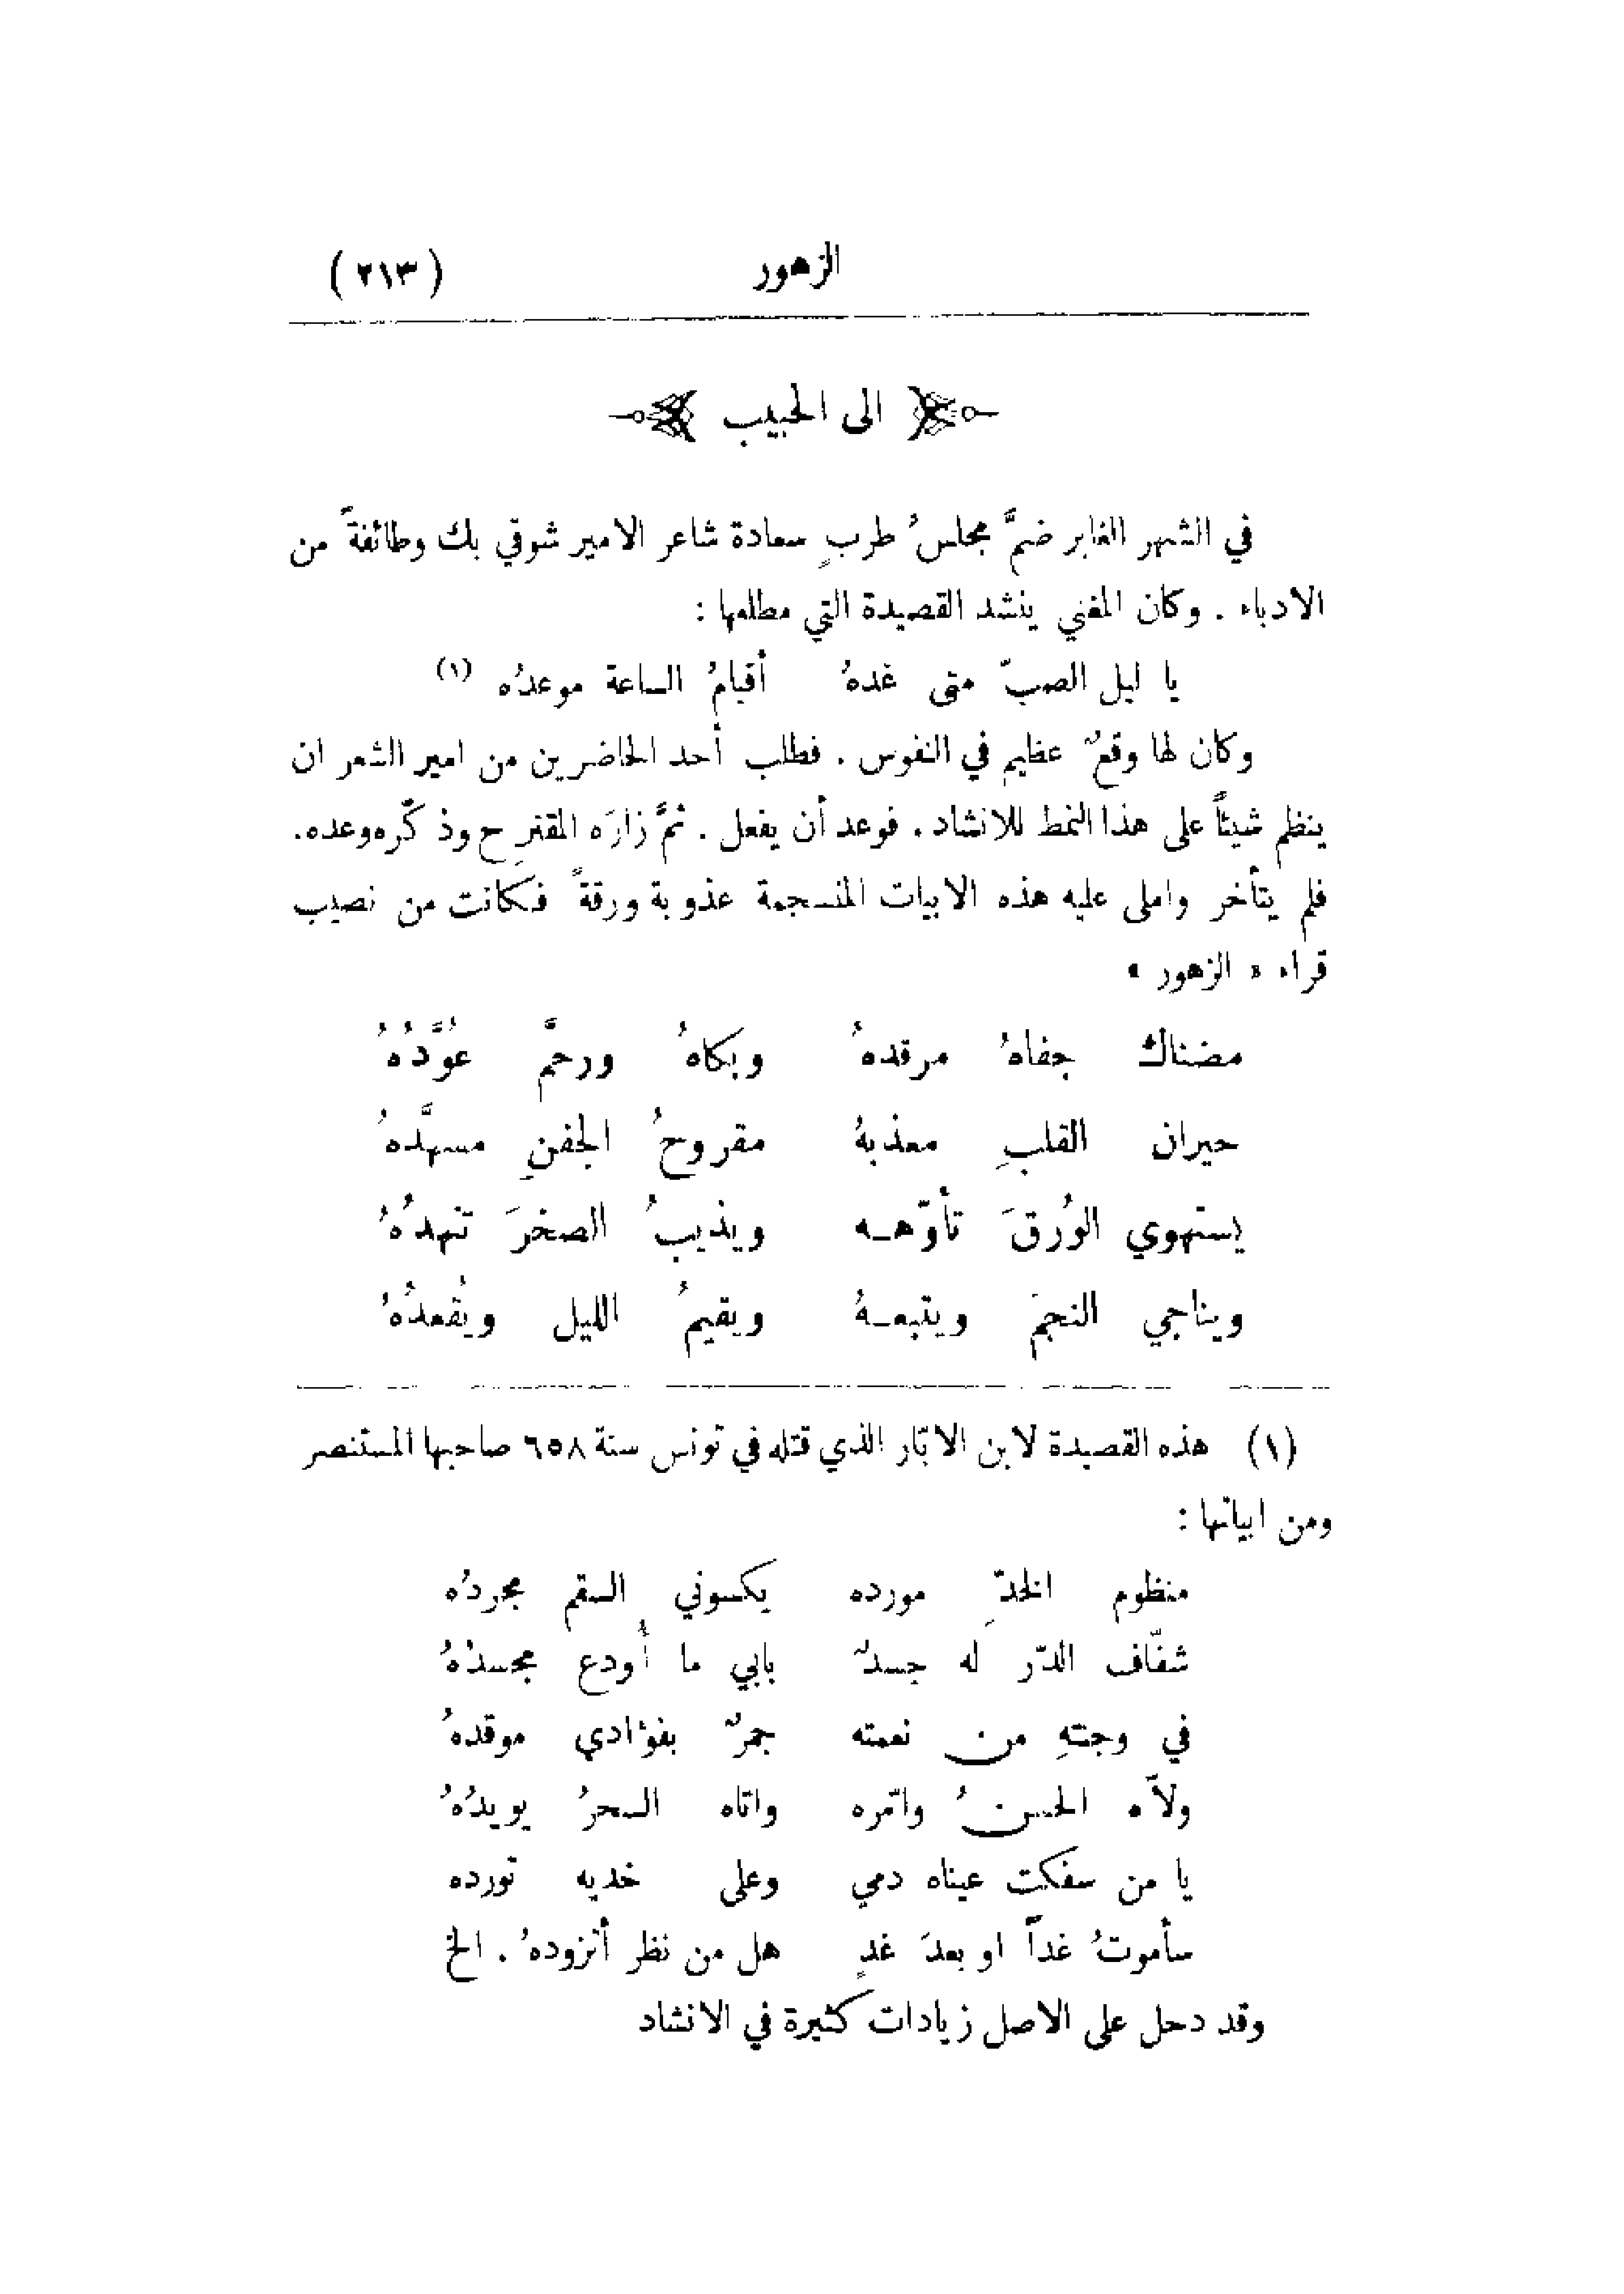 الزهور (٢١٣)
الى الحبيب
في الشهر الغابر ضمَّ مجلسُ طربٍ سعادة شاعر الامير شوقي بك وطائفةً من
الادباء . وكان المغني ينشد القصيدة التي مطلعها :
يا ليل الصبّ متى غدهُ أقيامُ الساعة موعدُه (١)
وكان لها وقعٌ عظيم في النفوس . فطلب أحد الحاضرين من امير الشعر ان
ينظم شيئاً على هذا النمط للانشاد . فوعد أن يفعل . ثمَّ زارَه المقترِح وذكّره وعده.
فلم يتأخر واملى عليه هذه الابيات المنسجمة عذوبة ورقةً فكانت من نصيب
قراء « الزهور »
مضناكَ جفاهُ مرقدهُ وبكاهُ ورحمَّ عُوَّدُهُ
حيران القلبِ معذبهُ مقروحُ الجفنِ مسهَّدهُ
يستهوي الوُرقَ تأوّهه ويذيبُ الصخرَ تنهدُهُ
ويناجي النجمَ ويتبعهُ ويقيمُ الليل ويُقعدُهُ
(١) هذه القصيدة لابن الابّار الذي قتله في تونس سنة ٦٥٨ صاحبها المستنصر
ومن ابياتها :
منظوم الخدّ مورده يكسوني السقم مجردُه
شفّاف الدّر له جسدٌ بابي ما أودع مجسدُهُ
في وجنتهِ من نعمته جمرٌ بفؤادي موقدهُ
ولاّه الحسنُ وامّره واتاه السحرُ يويدُهُ
يا من سفكت عيناه دمي وعلى خديه تورده
سأموتُ غداً او بعدَ غدٍ هل من نظر أتزودهُ . الخ
وقد دحل على الاصل زيادات كثيرة في الانشاد